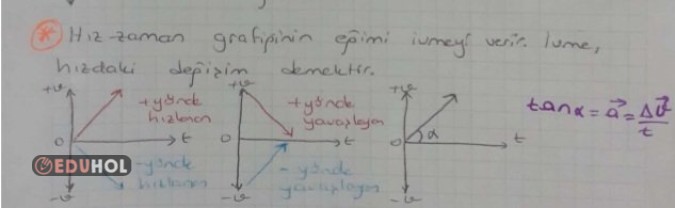 * Hız-zaman grafiğinin eğimi ivmeyi verir. İvme,
hızdaki değişim demektir.
+v
+yönde
hızlanan
0
t
-yönde
hızlanan
-v
+v
+yönde
yavaşlayan
0
t
-yönde
yavaşlayan
-v
+v
0
α
t
-v
tanα = a⃗ = Δv⃗/t
EDUHOL